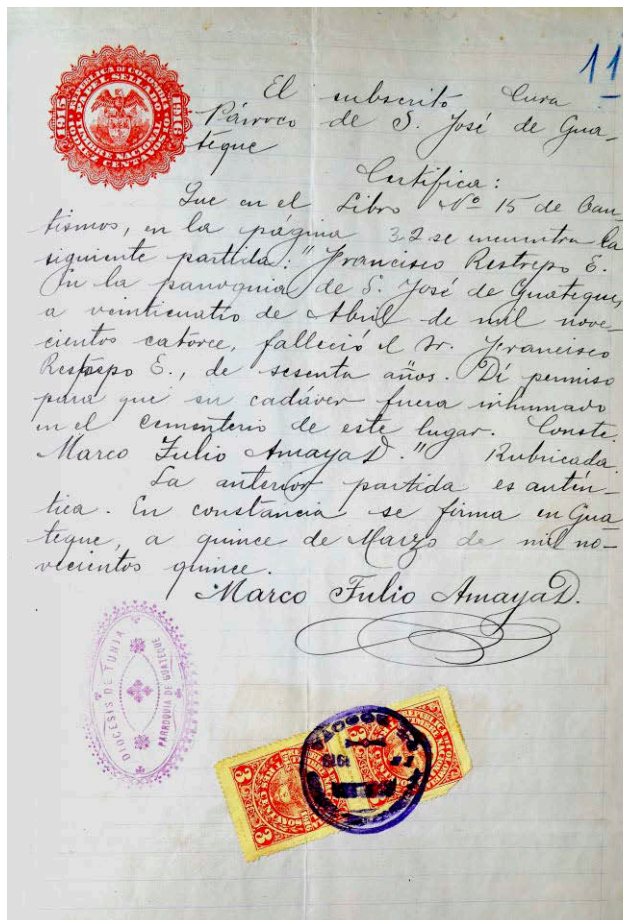 11
REPUBLICA DE COLOMBIA
PAPEL SELLADO
1915 1916
TIMBRE NACIONAL
DIEZ CENTAVOS
El subscrito Cura
Párroco de S. José de Gua-
teque
Certifica:
Que en el Libro Nº 15 de Bau-
tismos, en la página 32 se encuentra la
siguiente partida: "Francisco Restrepo E.
En la parroquia de S. José de Guateque,
a veinticuatro de Abril de mil nove-
cientos catorce, falleció el Sr. Francisco
Restrepo E., de sesenta años. Di permiso
para que su cadáver fuera inhumado
en el cementerio de este lugar. Conste.
Marco Julio Amaya D." Rubricada.
La anterior partida es autén-
tica. En constancia se firma en Gua
teque, a quince de Marzo de mil no-
vecientos quince.
Marco Julio Amaya D.
DIOCESIS DE TUNJA
PARROQUIA DE GUATEQUE
REPUBLICA
TIMBRE NACIONAL
3 CENTAVOS 3